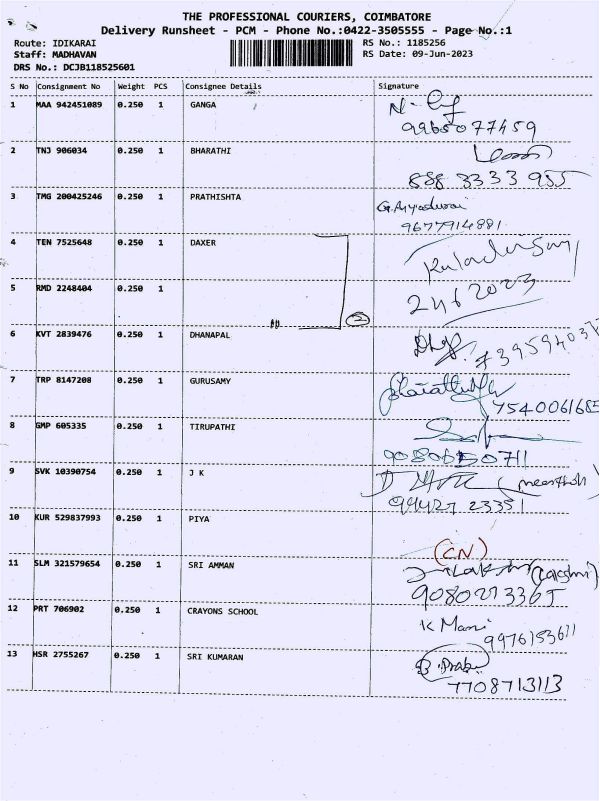 THE PROFESSIONAL COURIERS, COIMBATORE
Delivery Runsheet - PCM - Phone No.:0422-3505555 - Page No.:1
Route: IDIKARAI RS No.: 1185256
Staff: MADHAVAN RS Date: 09-Jun-2023
DRS No.: DCJB118525601
S No Consignment No Weight PCS Consignee Details Signature
1 MAA 942451089 0.250 1 GANGA
9965077459
2 TNJ 906034 0.250 1 BHARATHI
888 3333 955
3 TMG 200425246 0.250 1 PRATHISHTA
9677914881
4 TEN 7525648 0.250 1 DAXER
5 RMD 2248404 0.250 1
2
6 KVT 2839476 0.250 1 DHANAPAL
7 TRP 8147208 0.250 1 GURUSAMY
7540061685
8 GMP 605335 0.250 1 TIRUPATHI
9 SVK 10390754 0.250 1 J K
99427 23351
10 KUR 529837993 0.250 1 PIYA
(CN)
11 SLM 321579654 0.250 1 SRI AMMAN
(Lakshmi)
9080273365
12 PRT 706902 0.250 1 CRAYONS SCHOOL
K Mani
9976153611
13 HSR 2755267 0.250 1 SRI KUMARAN
7708713113